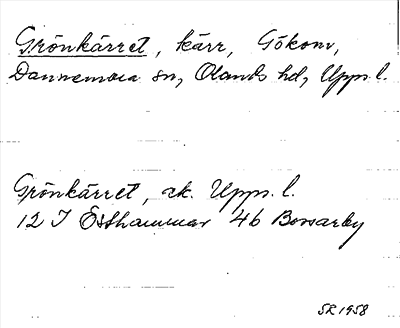 Grönkärret, kärr, Gökom,
Dannemora sn, Olands hd, Upps. l.
Grönkärret, ek. Upps. l.
12 I Östhammar 4b Borrarby
SR 1958